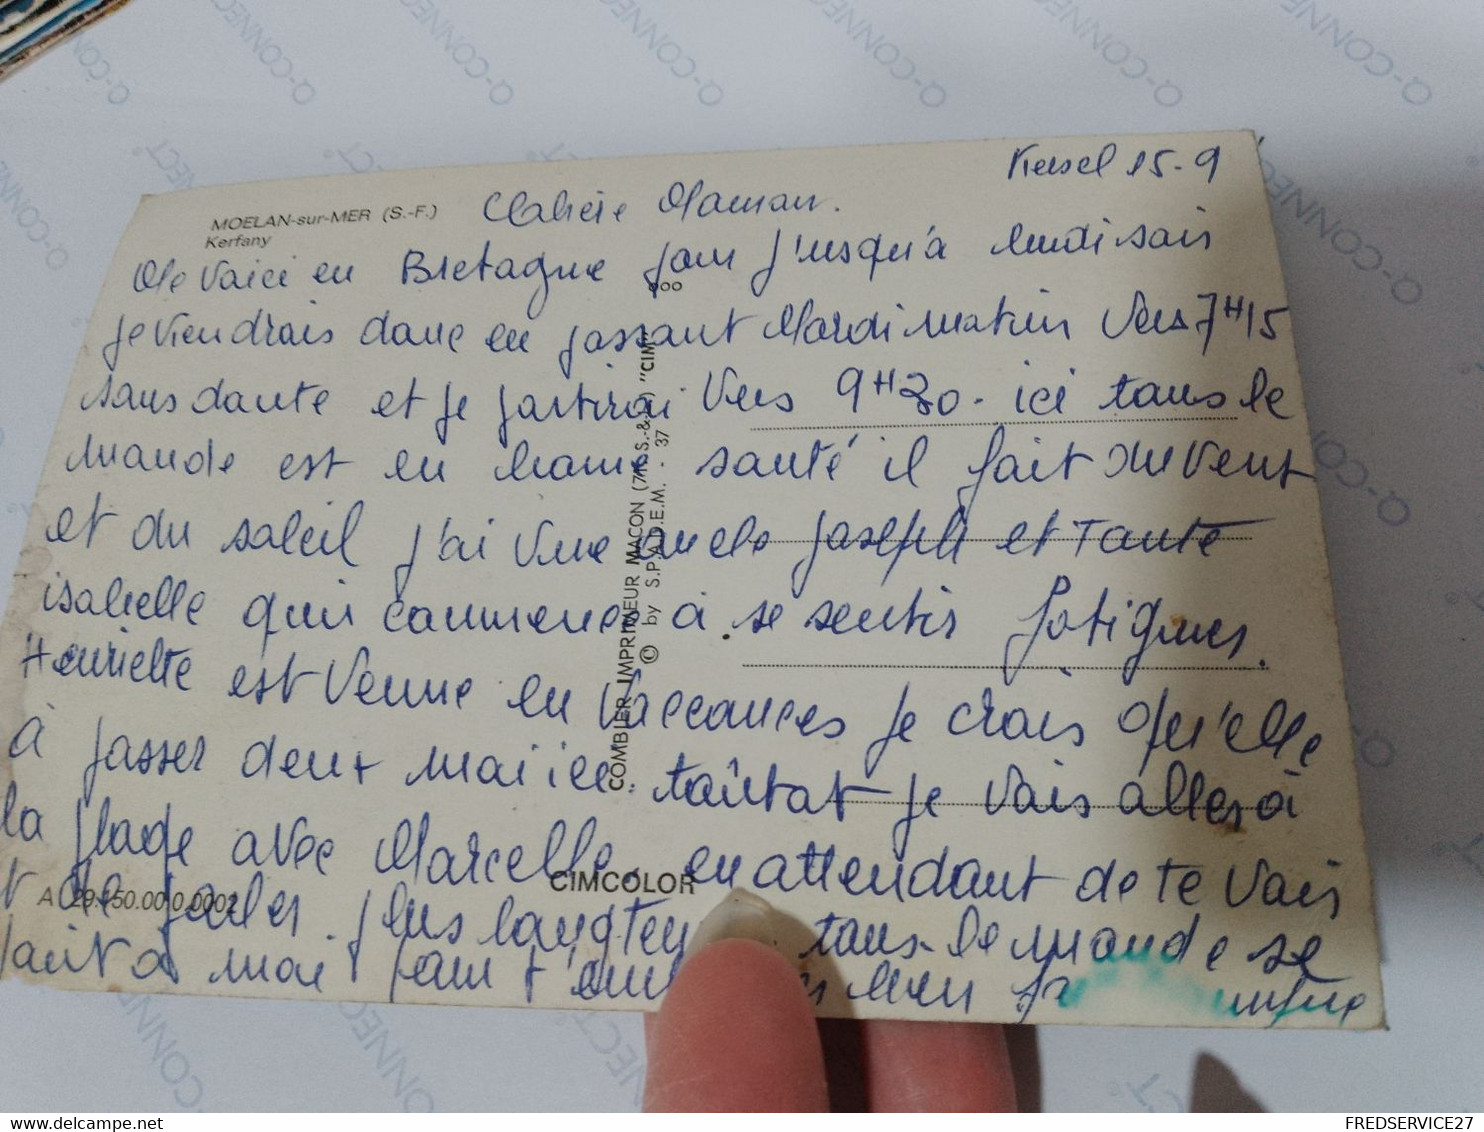 15-9
MOELAN-sur-MER (S.-F.)
Kerfany
Chère Maman.
Me Voici en Bretagne pour j'usqu'a lundi soir
ooo
je viendrais donc en passant Mardi matin Vers 7H15
sans doute et je partirai Vers 9H30. ici tous le
monde est en bonne santé il fait du vent
et du soleil j'ai vue oncle joseph et Tante
isabelle qui commence à se sentir fatigues.
Henriette est Venue en Vaccances je crois qu'elle
à passer deux moi ici. tantot je Vais aller à
la plage avec Marcelle. en attendant de te Voir
et de parler plus longtemps tous le monde se
joint a moi pour
COMBIER IMPRIMEUR MACON (71-S.-&-L.) "CIM"
© by S.P.A.D.E.M. - 37
CIMCOLOR
A 29.150.00.0.0002
Q-CONNECT
FREDSERVICE27